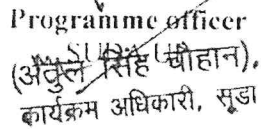 Programme officer
SUDA
(अतुल सिंह चौहान),
कार्यक्रम अधिकारी, सूडा